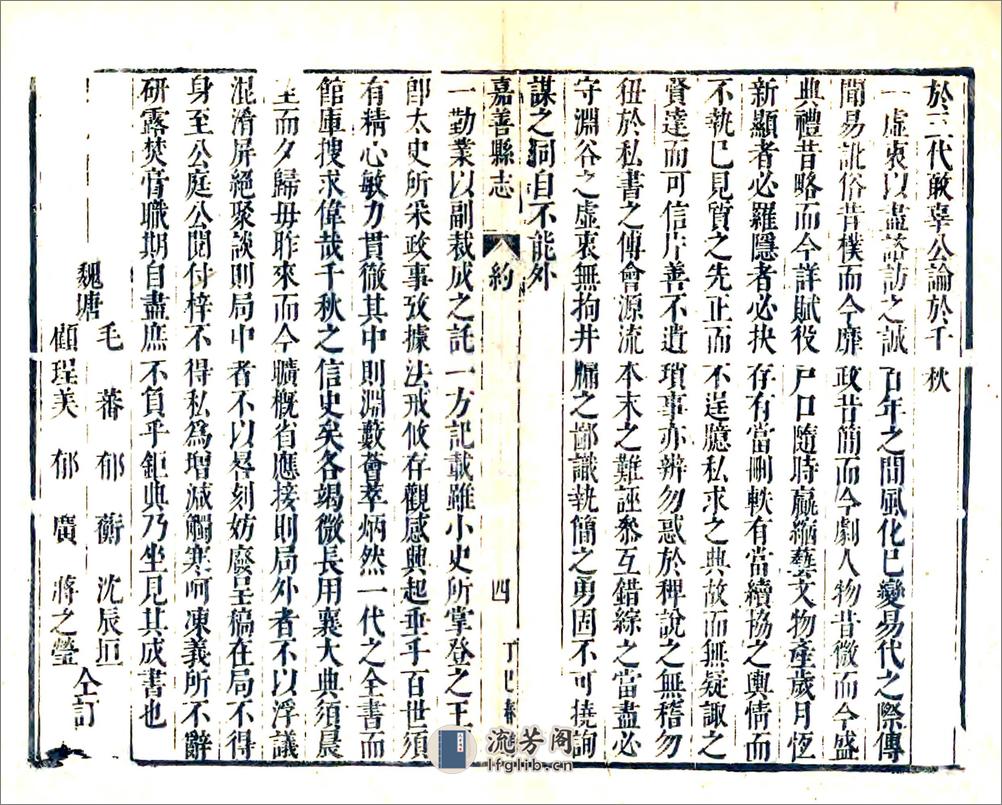 於三代敢辜公論於千秋
一虛衷以盡諮訪之誠百年之間風化已變易代之際傳
聞易訛俗昔樸而今靡政昔簡而今劇人物昔微而今盛
典禮昔略而今詳賦役戶口隨時贏縮藝文物產歲月恆
新顯者必羅隱者必抉存有當刪軼有當續協之輿情而
不執己見質之先正而不逞臆私求之典故而無疑諏之
賢達而可信片善不遺瑣事亦辨勿惑於稗說之無稽勿
狃於私書之傅會源流本末之難誣參互錯綜之當盡必
守淵谷之虛衷無拘井牖之鄙識執簡之勇固不可撓詢
謀之同自不能外
嘉善縣志 約 四
一勤業以副裁成之託一方記載雖小史所掌登之王
即太史所采政事攷據法戒攸存觀感興起垂乎百世須
有精心敏力貫徹其中則淵藪薈萃炳然一代之全書而
館庫搜求偉哉千秋之信史矣各竭微長用襄大典須晨
至而夕歸毋昨來而今曠概省應接則局外者不以浮議
混淆屏絕聚談則局中者不以晷刻妨廢呈稿在局不得
身至公庭公閱付梓不得私為增減觸寒呵凍義所不辭
研露焚膏職期自盡庶不負乎鉅典乃坐見其成書也
魏塘
毛蕃 郁蘅 沈辰垣
顧珵美 郁廣 蔣之瑩
仝訂
流芳阁
lfglib.cn